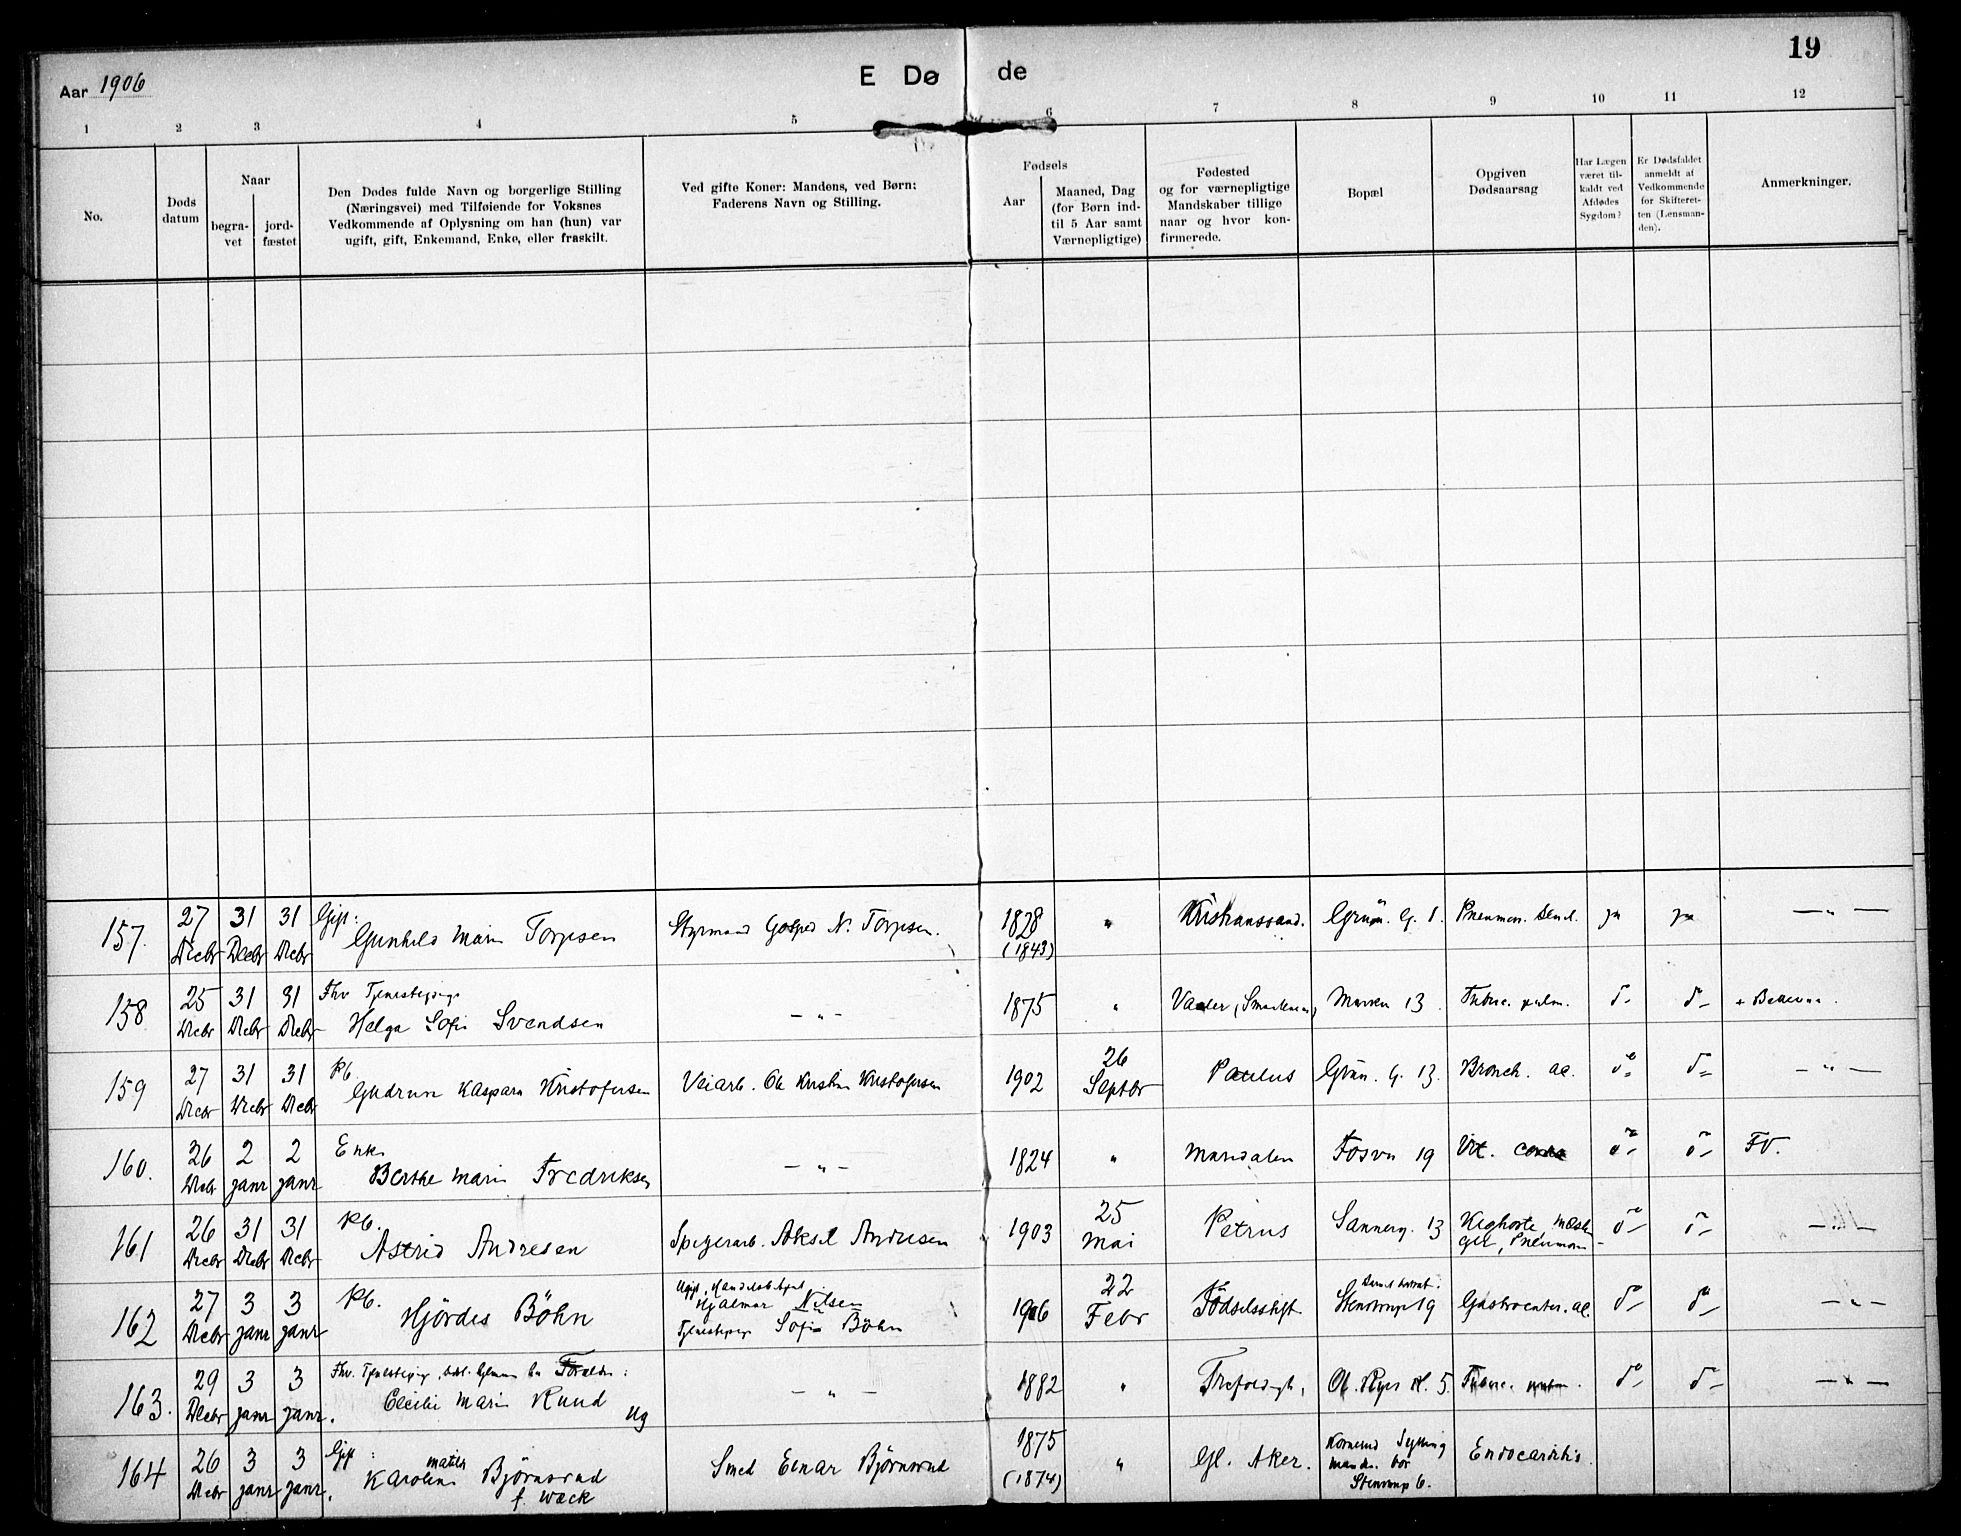 19
Aar 1906
E Dø de
1 2 3 4 5 6 7 8 9 10 11 12
No.
Døds
datum
Naar
begra-
vet
jord-
fæstet
Den Dødes fulde Navn og borgerlige Stilling
(Næringsvei) med Tilføiende for Voksnes
Vedkommende af Oplysning om han (hun) var
ugift, gift, Enkemand, Enke, eller fraskilt.
Ved gifte Koner: Mandens, ved Børn:
Faderens Navn og Stilling.
Fødsels
Aar
Maaned, Dag
(for Børn ind-
til 5 Aar samt
Værnepligtige)
Fødested
og for værnepligtige
Mandskaber tillige
naar og hvor kon-
firmerede.
Bopæl
Opgiven
Dødsaarsag
Har Lægen
været til-
kaldt ved
Afdødes
Sygdom?
Er Dødsfaldet
anmeldt af
Vedkommende
for Skifteret-
ten (Lensman-
den).
Anmerkninger.
157. 27 Decbr 31 Decbr 31 Decbr Gift:
Gunhild Marie Torpsen Styrmand N. Torpsen. 1828 (1843) " Kristianssand. Grün. G. 1. Pneumon. ja ja — " —
158 25 Decbr 31 Decbr 31 Decbr Fhv Tjenestepige
Helga Sofie Svendsen — " — 1875 " Vaaler (Smaalenene) 13 Tuberc. pulm. d- d-
159 27 Decbr 31 Decbr 31 Decbr Pb
Gudrun Kaspara Kristofersen Veiarb. Ole Kristian Kristofersen 1902 26 Septbr Paulus Grün. G. 13. Bronch. ac. d- d- — " —
160. 26 Decbr 2 Janr 2 Janr Enke
Berthe Marie Fredriksen — " — 1824 " Mandalen Fosvn 19 Vit. d- d- FV.
161 26 Decbr 31 Decbr 31 Decbr Pb.
Astrid Andresen Spigerarb. Aksel Andresen 1903 25 Mai Petrus Sannerg. 13 Kighoste, Pneumon d- d- — " —
162 27 Decbr 3 Janr 3 Janr Pb.
Hjördis Böhn Ugift.
Hjalmar Nilsen
Tjenestepige Sofie Böhn 1906 22 Febr Födselsstift. Stenstrup 19 Gastroenter. ac. d- d- — " —
163. 29 Decbr 3 Janr 3 Janr Fhv. Tjenestepige
Cecilie Marie Ruud ug — " — 1882 " Trefoldigh. Ol. Ryes Pl. 5. Tuberc. d- d- — " —
164 26 Decbr 3 Janr 3 Janr Gift:
Karoline Mathea Björnsrud
f. Wæck Smed Einar Björnsrud 1875 (1874) " Gl. Aker. bor
Stenstrup 6. Endocarditis